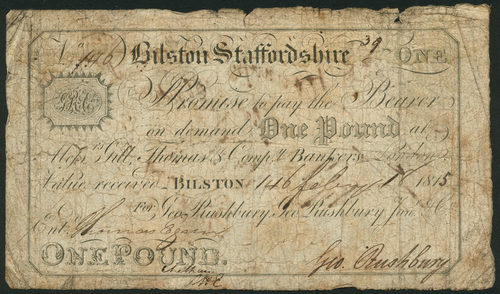 No 146 Bilston Staffordshire 39 ONE
I Promise to pay the Bearer
on demand One Pound at
Messrs Gill, Thomas & Compy Bankers London
Value received BILSTON 146 Feby 1815
For Geo. Rushbury, Geo. Rushbury Junr & Co
Entd
ONE POUND.
Geo. Rushbury